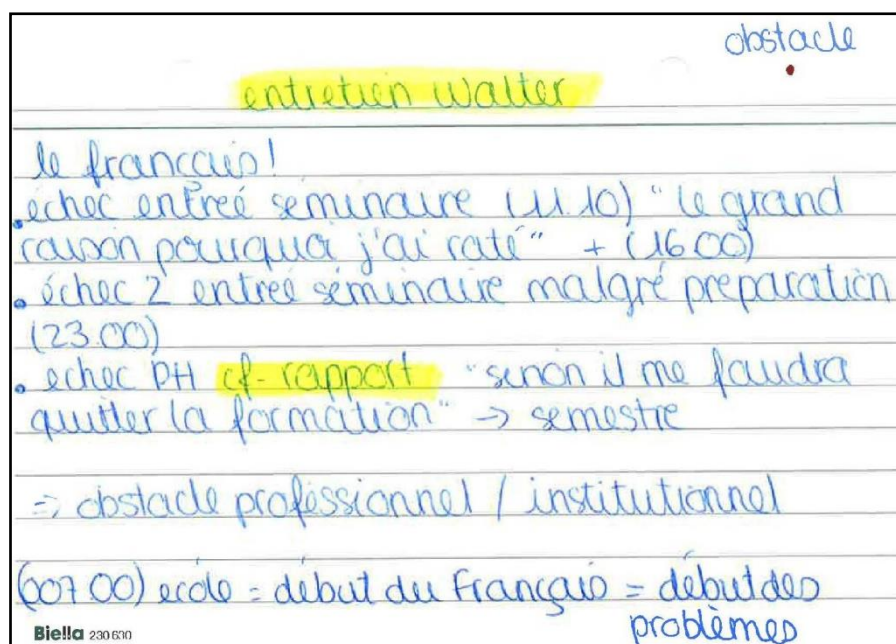 obstacle
entretien Walter
le français!
• échec entreé séminaire (11.10) "le grand
raison pourquoi j'ai raté" + (16 00)
• échec 2 entreé séminaire malgré préparation
(23.00)
• echec PH cf- rapport "sinon il me faudra
quitter la formation" → semestre
=> obstacle professionnel / institutionnel
(007 00) ecole = début du Français = début des
problèmes
Biella 230 630